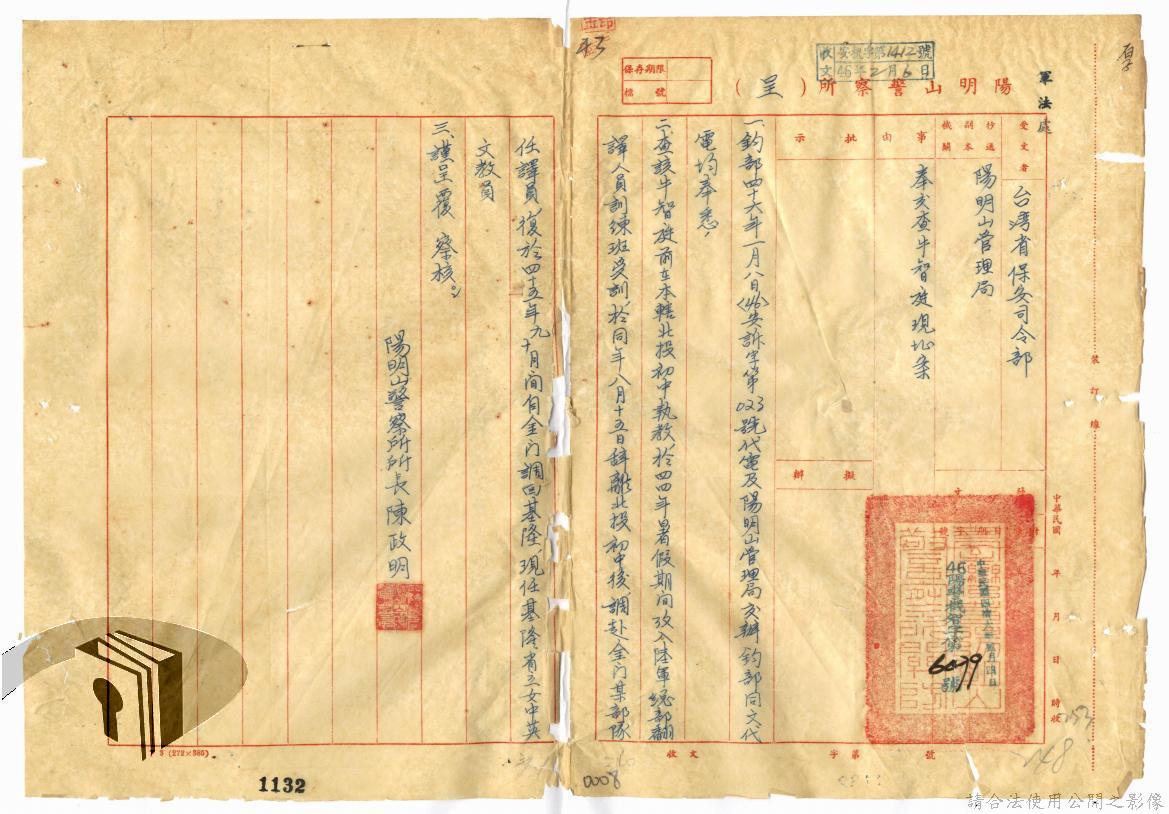 43
收文 安机字第1412號
46年2月6日
保存期限
檔號
陽明山警察所（呈）
軍法處
受文者
台湾省保安司令部
抄送副本機關
陽明山管理局
事由
奉交查牛智庭現址案
批示
擬辦
中華民國 年 月 日 時收
46陽警機智字第
6079
號
裝訂線
一、鈞部四十六年一月八日(46)安訴字第023號代電及陽明山管理局交辦鈞部同文代
電均奉悉，
二、查該牛智庭前在本轄北投初中執教，於四四年暑假期間攷入陸軍總部翻
譯人員訓練班受訓，於同年八月十五日辞離北投初中後，調赴金门某部隊
任譯員，復於四十五年九十月间自金门調回基隆，現任基隆省立女中英
文教員
三、謹呈覆 察核。
陽明山警察所所長陳政明
收文 字第 號
3 (272×385)
1132
0008
148
153
請合法使用公開之影像